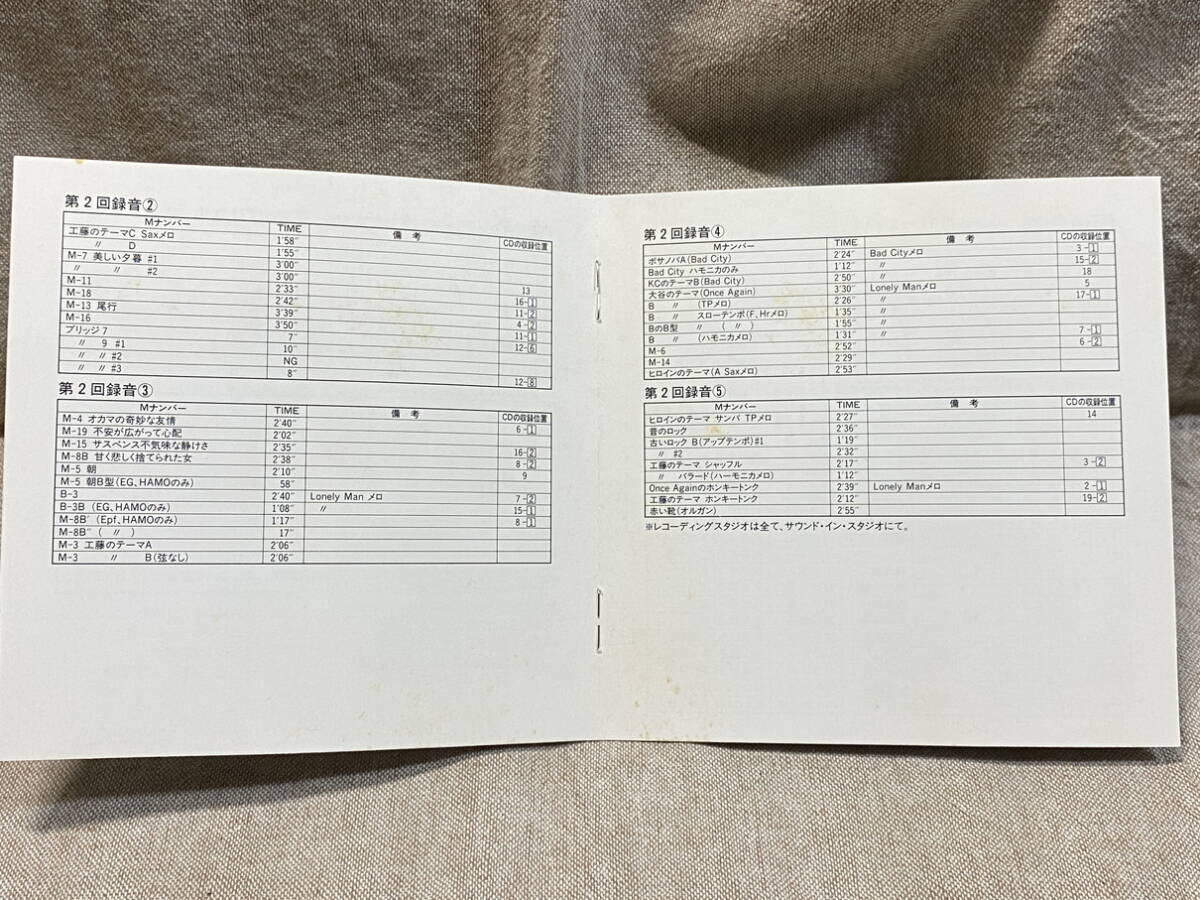 第2回録音②
Mナンバー TIME 備考 CDの収録位置
工藤のテーマC Saxメロ 1'58"
〃 D 1'55"
M-7 美しい夕暮 #1 3'00"
〃 〃 #2 3'00"
M-11 2'33" 13
M-18 2'42" 16-1
M-13 尾行 3'39" 11-2
M-16 3'50" 4-2
ブリッジ7 7" 11-1
〃 9 #1 10" 12-6
〃 〃 #2 NG
〃 〃 #3 8" 12-8
第2回録音③
Mナンバー TIME 備考 CDの収録位置
M-4 オカマの奇妙な友情 2'40" 6-1
M-19 不安が広がって心配 2'02"
M-15 サスペンス不気味な静けさ 2'35" 16-2
M-8B 甘く悲しく捨てられた女 2'38" 8-2
M-5 朝 2'10" 9
M-5 朝B型(EG、HAMOのみ) 58"
B-3 2'40" Lonely Man メロ 7-2
B-3B (EG、HAMOのみ) 1'08" 〃 15-1
M-8B' (Epf、HAMOのみ) 1'17" 8-1
M-8B" ( 〃 ) 17"
M-3 工藤のテーマA 2'06"
M-3 〃 B(弦なし) 2'06"
第2回録音④
Mナンバー TIME 備考 CDの収録位置
ボサノバA(Bad City) 2'24" Bad Cityメロ 3-1
Bad City ハモニカのみ 1'12" 〃 15-2
KCのテーマB(Bad City) 2'50" 〃 18
大谷のテーマ(Once Again) 3'30" Lonely Manメロ 5
B 〃 (TPメロ) 2'26" 〃 17-1
B 〃 スローテンポ(F、Hrメロ) 1'35" 〃
BのB型 〃 ( 〃 ) 1'55" 〃
B 〃 (ハモニカメロ) 1'31" 〃 7-1
M-6 2'52" 6-2
M-14 2'29"
ヒロインのテーマ(A Saxメロ) 2'53"
第2回録音⑤
Mナンバー TIME 備考 CDの収録位置
ヒロインのテーマ サンバ TPメロ 2'27" 14
昔のロック 2'36"
古いロック B(アップテンポ)#1 1'19"
〃 #2 2'32"
工藤のテーマ シャッフル 2'17" 3-2
〃 バラード(ハーモニカメロ) 1'12"
Once Againのホンキートンク 2'39" Lonely Manメロ 2-1
工藤のテーマ ホンキートンク 2'12" 19-2
赤い靴(オルガン) 2'55"
※レコーディングスタジオは全て、サウンド・イン・スタジオにて。